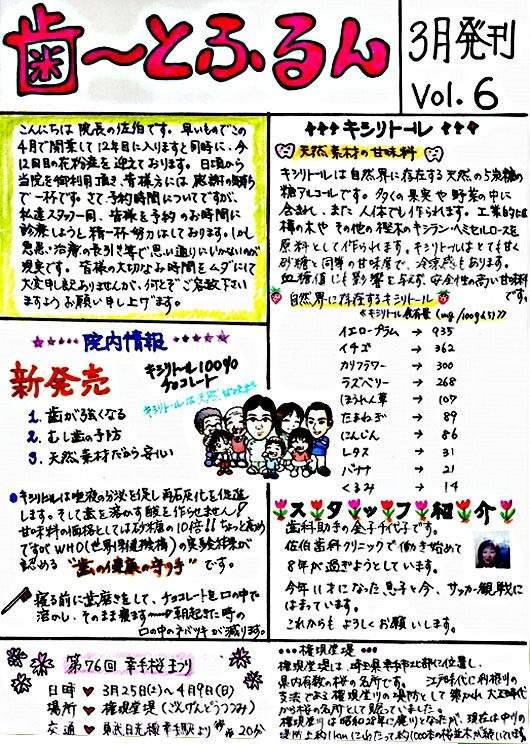 歯〜とふるん
3月発刊
Vol. 6
こんにちは 院長の佐伯です。早いものでこの
4月で開業して12年目に入りますと同時に、今
12回目の花粉症を迎えております。日頃から
当院を御利用頂き、皆様方には感謝の気持ち
で一杯です。さて、予約時間についてですが、
私達スタッフ一同、皆様を予約のお時間に
診療しようと精一杯努力はしております。しかし
急患・治療の長引き等で思い通りにいかないのが
現実です。皆様の大切なお時間をムダにして
大変申し訳ありませんが、何とぞご容赦下さい
ますようお願い申し上げます。
キシリトール
天然素材の甘味料
キシリトールは自然界に存在する天然の5炭糖の
糖アルコールです。多くの果実や野菜の中に
含まれ、また人体でも作られます。工業的には
樺の木やその他の樫木のキシラン・ヘミセルロースを
原料として作られます。キシリトールはとても甘く
砂糖と同等の甘味度で、冷涼感もあります。
血糖値にも影響を与えず、安全性の高い甘味料
です。
自然界に存在するキシリトール
≪キシリトール含有量(mg/100g中)≫
イエロープラム → 935
イチゴ → 362
カリフラワー → 300
ラズベリー → 268
ほうれん草 → 107
たまねぎ → 89
にんじん → 86
レタス → 31
バナナ → 21
くるみ → 14
院内情報
新発売
キシリトール100%
チョコレート
キシリトールは天然甘味料
1. 歯が強くなる
2. むし歯の予防
3. 天然素材だから安心
●キシリトールは唾液の分泌を促し再石灰化を促進
します。そして歯を溶かす酸を作らせません!
甘味料の価格としては砂糖の10倍!!ちょっと高め
ですがWHO(世界保健機構)の実験結果が
認める "歯の健康の守り手" です。
寝る前に歯磨きをして、チョコレートを口の中で
溶かし、そのまま寝ます→朝起きた時の
口の中のネバツキが減ります。
スタッフ紹介
歯科助手の金子千代子です。
佐伯歯科クリニックで働き始めて
8年が過ぎようとしています。
今年11才になった息子と今、サッカー観戦に
はまっています。
これからもよろしくお願いします。
第76回 幸手桜まつり
日時 ♥ 3月25日(土)〜4月9日(日)
場所 ♥ 権現堂堤(ごんげんどうつつみ)
交通 ♥ 東武日光線幸手駅より 徒歩20分
権現堂堤
権現堂堤は、埼玉県幸手市北部に位置し、
県内有数の桜の名所です。江戸時代に利根川の
支流である権現堂川の堤防として築かれ大正時代
から桜の名所として賑っていました。
権現堂川は昭和初年に廃川となったが、現在は中川の
堤防上約1kmにわたって約1000本の桜並木が続いています。